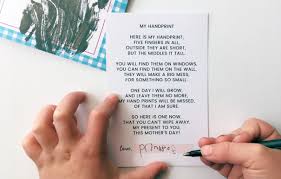 MY HANDPRINT
HERE IS MY HANDPRINT,
FIVE FINGERS IN ALL,
OUTSIDE THEY ARE SHORT,
BUT THE MIDDLES IT TALL.
YOU WILL FIND THEM ON WINDOWS,
YOU CAN FIND THEM ON THE WALL,
THEY WILL MAKE A BIG MESS,
FOR SOMETHING SO SMALL.
ONE DAY I WILL GROW,
AND LEAVE THEM NO MORE,
MY HAND PRINTS WILL BE MISSED,
OF THAT I AM SURE.
SO HERE IS ONE NOW
THAT YOU CAN'T WIPE AWAY.
MY PRESENT TO YOU,
THIS MOTHER'S DAY!
Love,